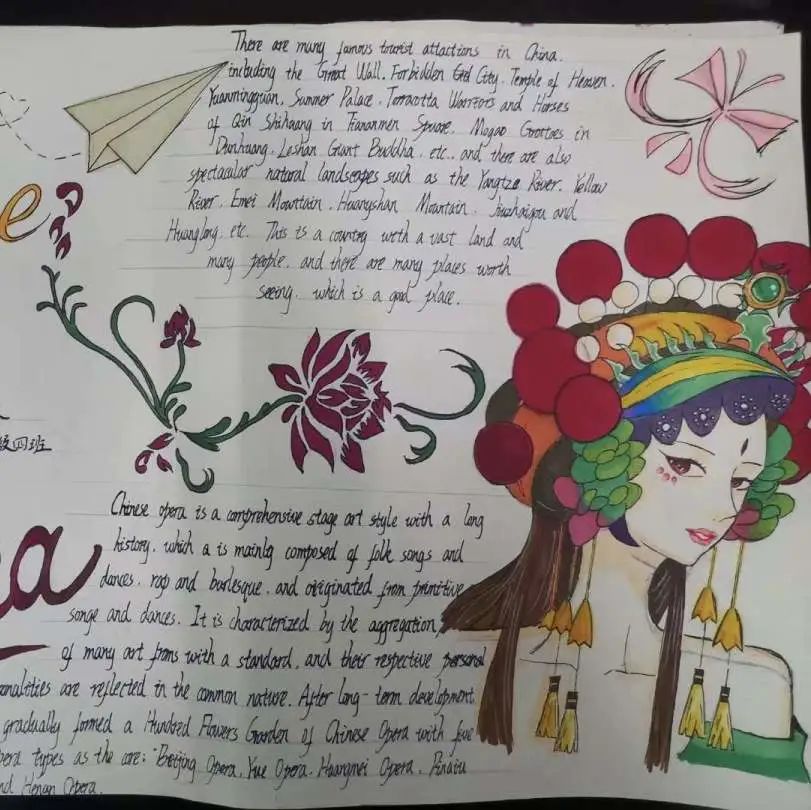 There are many famous tourist attactions in China.
including the Great Wall. Forbidden City. Temple of Heaven.
Yuanmingyuan. Summer Palace. Terracotta Warriors and Horses
of Qin Shihuang in Tiananmen Square. Mogao Grottoes in
Dunhuang. Leshan Giant Buddha. etc.. and there are also
spectacular natural landscapes such as the Yangtze River. Yellow
River. Emei Mountain. Huangshan Mountain. Jiuzhaigou and
Huanglong. etc. This is a country with a vast land and
many people. and there are many places worth
seeing. which is a good place.
e
四班
a
Chinese opera is a comprehensive stage art style with a long
history. which a is mainly composed of folk songs and
dances. rap and burlesque. and originated from primitive
songe and dances. It is characterized by the aggregation
of many art froms with a standard, and their respective personal
onalities are reflected in the common nature. After long-term development
gradually formed a Hundred Flowers Garden of Chinese Opera with five
pera types as the core: Beijing Opera. Yue Opera. Huangmei Opera.
nd Henan Opera.